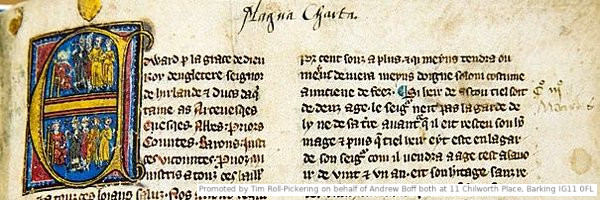 Magna Charta.
Edward p la grace de dieu
Roy dengletere seignor
de hyrlande & ducs daq
taine as Arceuesqes
Euesqes Abbes Priors
Countes Barons Just
ces vicountes
a tous ces
a tous ces foiaus saluz. Nos
por cent souz a plus. & qi meyns tendra ou
meins de meyns doigne solom costume
aunciene de feez. Si leir de ascun tiel soit
de denz age. le seigr neit pas la garde de
ly ne de sa tre. auant q il eit resceu son ho
mage & puis qe tiel heir eyt este en la gar
de son seigr com il uendra a age cest asau
ir de vint & vn an. eit son heritage sanz re
Promoted by Tim Roll-Pickering on behalf of Andrew Boff both at 11 Chilworth Place, Barking IG11 0FL